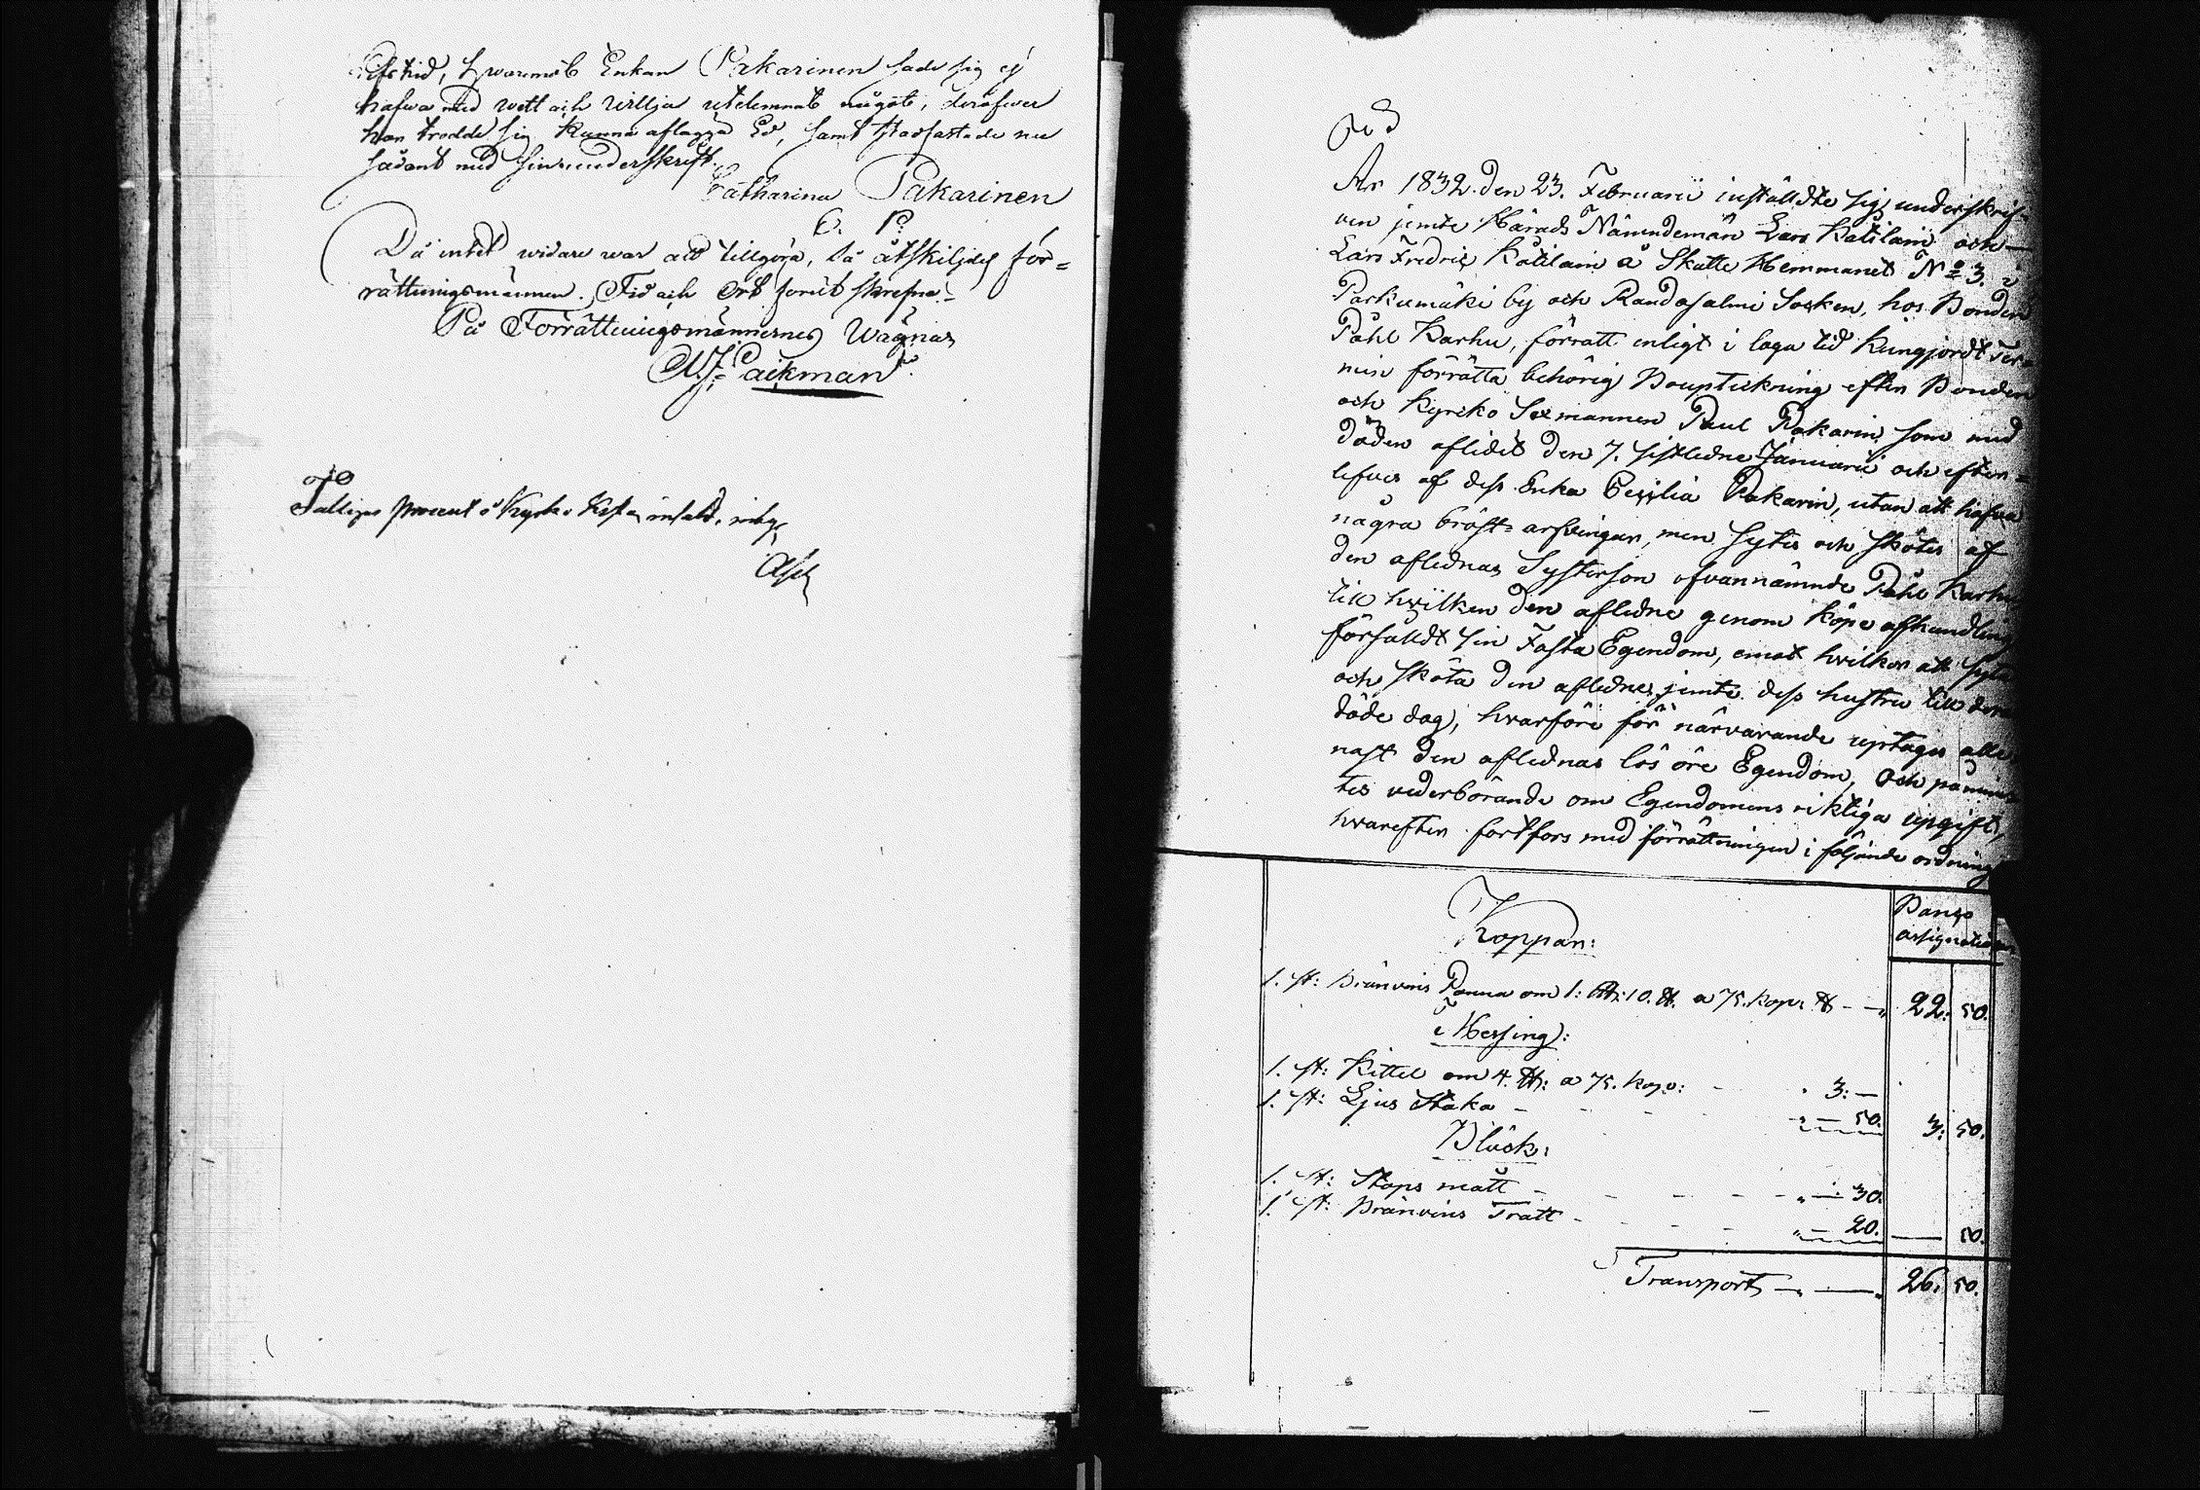 hwaremot Enkan Pakarinen sade sig ej
hafwa med wett och willja utelemnat något, deröfwer
hon trodde sig kunna aflägga Ed, samt stadfästade nu
sådant med sin underskrift.
Catharina Pakarinen
E. P.
Då intet widare war att tillgöra, så åtskiljdes för=
rättningsmännen. Tid och Ort förut skrefne.
På Förrättningsmännernes Wägnar
Päckman
Fattiges procent å Kyrko
År 1832. den 23. Februarii instälte sig underskrif-
ven jemte Härads Nämndemän Lars Kätilain och
Lars Fredric Kätilain å Skatte Hemmanet No 3. i
Parkumäki by och Randasalmi Socken, hos Bonden
Påhl Karhu, förrätt enligt i laga tid kungjordt Ter-
min förrätta behörig Bouptekning efter Bonden
och Kyrcko Sexmannen Paul Pakarin, som med
döden aflidit den 7. sistledne Januarii och efter=
lefves af dess Enka Cecilia Pakarin, utan att hafva
några bröst=arfvingar, men sytes och skötes af
den aflednas Systerson ofvannämnde Påhl Karhu
till hvilken den afledne genom köpe afhandling
försålldt sin Fasta Egendom, emot hvilkor att syta
och sköta den afledne jemte dess hustru till dera
döde dag, hvarföre för närvarande uptages alle
nast den aflednas lös öre Egendom, Och påmin
tes vederbörande om Egendomens riktiga upgift,
hvarefter fortfors med förrättningen i följande ordning
Banco
assignationer
Koppar:
1. st: Bränvins Panna om 1: L℔: 10. ℔. a 75. kop: ℔ 22: 50.
Messing:
1. st: Kittel om 4. ℔: a 75. kop: 3: —
1. st: Ljus Staka 50. 3: 50.
Bläck:
1. st: Stops mått 30.
1. st: Bränvins Tratt 20. — 50.
Transport 26: 50.